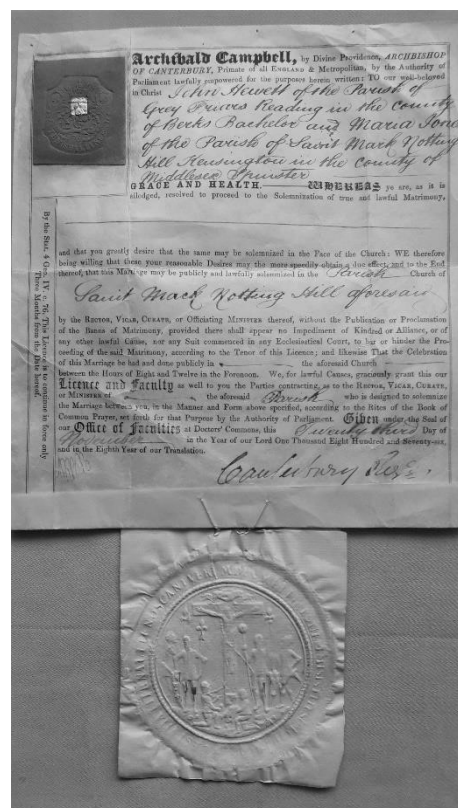 Archibald Campbell, by Divine Providence, ARCHBISHOP
OF CANTERBURY, Primate of all ENGLAND & Metropolitan, by the Authority of
Parliament lawfully empowered for the purposes herein written: TO our well-beloved
in Christ John Hewett of the Parish of
Grey Friars Reading in the county
of Berks Bachelor and Maria Jone
of the Parish of Saint Mark Notting
Hill Kensington in the county of
Middlesex Spinster
GRACE AND HEALTH. WHEREAS ye are, as it is
alledged, resolved to proceed to the Solemnization of true and lawful Matrimony,
and that you greatly desire that the same may be solemnized in the Face of the Church: WE therefore
being willing that these your reasonable Desires may the more speedily obtain a due effect, and to the End
thereof, that this Marriage may be publicly and lawfully solemnized in the Parish Church of
Saint Mark Notting Hill aforesaid
by the RECTOR, VICAR, CURATE, or Officiating MINISTER thereof, without the Publication or Proclamation
of the Banns of Matrimony, provided there shall appear no Impediment of Kindred or Alliance, or of
any other lawful Cause, nor any Suit commenced in any Ecclesiastical Court, to bar or hinder the Pro-
ceeding of the said Matrimony, according to the Tenor of this Licence; and likewise That the Celebration
of this Marriage be had and done publicly in the aforesaid Church
between the Hours of Eight and Twelve in the Forenoon. We, for lawful Causes, graciously grant this our
Licence and Faculty as well to you the Parties contracting, as to the RECTOR, VICAR, CURATE,
or MINISTER of the aforesaid Parish who is designed to solemnize
the Marriage between you, in the Manner and Form above specified, according to the Rites of the Book of
Common Prayer, set forth for that Purpose by the Authority of Parliament. Given under the Seal of
our Office of Faculties at Doctors' Commons, this Twenty third Day of
November in the Year of our Lord One Thousand Eight Hundred and Seventy-six,
and in the Eighth Year of our Translation.
By the Stat. 4 Geo. IV. c. 76. This Licence is to continue in force only
Three Months from the Date hereof.